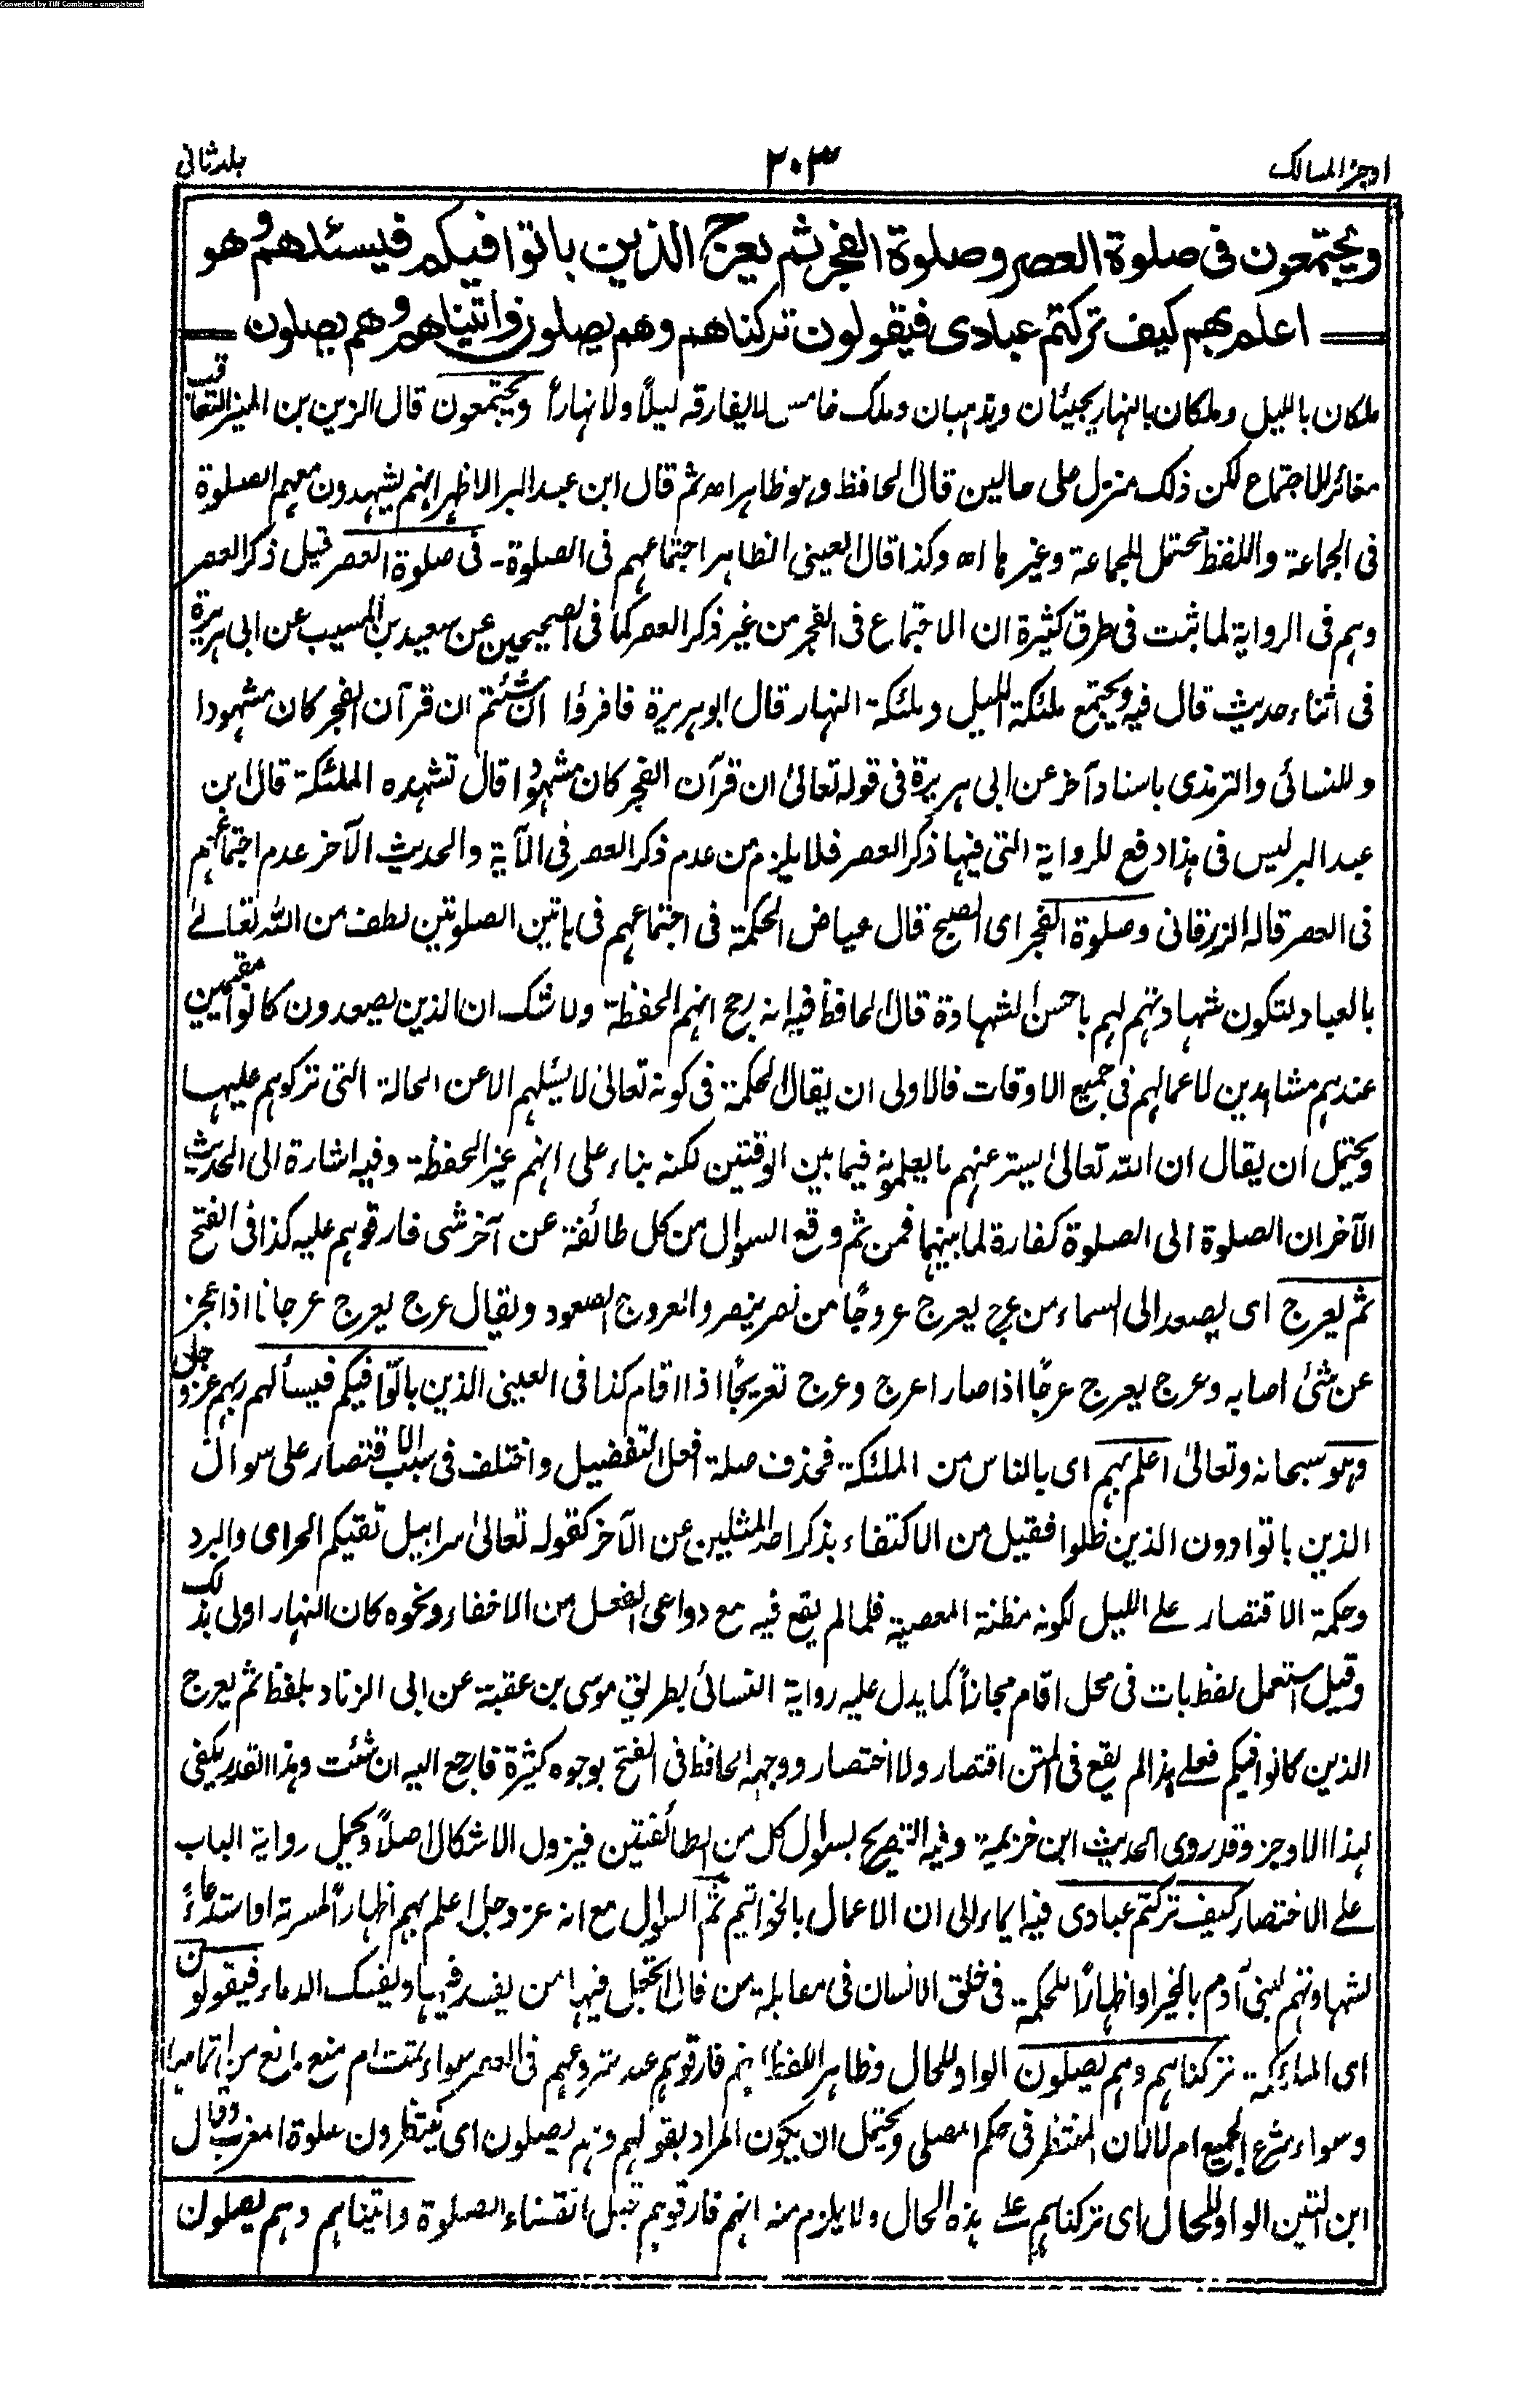 Converted by Tiff Combine - unregistered
اوجز المسالك
٢٠٣
جلد ثانی
ويجتمعون فى صلوة العصر وصلوة الفجر ثم يعرج الذين باتوا فيكم فيسئلهم وهو
اعلم بهم كيف تركتم عبادى فيقولون تركناهم وهم يصلون واتيناهم وهم يصلون
ملكان بالليل وملكان بالنهار يجيئان ويذهبان وملك خامس لا يفارقه ليلاً ولا نهاراً ويجتمعون قال الزين بن المنير التعاقب
مغائر للاجتماع لكن ذلك منزل على حالين قال الحافظ وهو ظاهر اھ ثم قال ابن عبد البر الاظهر انهم يشهدون معهم الصلوة
فى الجماعة واللفظ محتمل للجماعة وغيرها اھ وكذا قال العينى الظاهر اجتماعهم فى الصلوة ـ فى صلوة العصر قيل ذكر العصر
وهم فى الرواية لما ثبت فى طرق كثيرة ان الاجتماع فى الفجر من غير ذكر العصر كما فى الصحيحين عن سعيد بن المسيب عن ابى هريرة
فى اثناء حديث قال فيه ويجتمع ملئكة الليل وملئكة النهار قال ابو هريرة فاقرؤا ان شئتم ان قرآن الفجر كان مشهودا
وللنسائى والترمذى باسناد آخر عن ابى هريرة فى قوله تعالىٰ ان قرآن الفجر كان مشهودا قال تشهده الملئكة قال ابن
عبد البر ليس فى هذا دفع للرواية التى فيها ذكر العصر فلا يلزم من عدم ذكر العصر فى الآية والحديث الآخر عدم اجتماعهم
فى العصر قاله الزرقانى وصلوة الفجر اى الصبح قال عياض الحكمة فى اجتماعهم فى هاتين الصلوتين لطف من الله تعالے
بالعباد لتكون شهادتهم لهم باحسن الشهادة قال الحافظ فيه انه رجح انهم الحفظة ولا شك ان الذين يصعدون كانوا مقيمين
عندهم مشاهدين لاعمالهم فى جميع الاوقات فالاولى ان يقال الحكمة فى كونه تعالىٰ لا يسئلهم الا عن الحالة التى تركوهم عليها
ويحتمل ان يقال ان الله تعالىٰ يستر عنهم ما يعلمونه فيما بين الوقتين لكنه بناء على انهم غير الحفظة وفيه اشارة الى الحديث
الآخر ان الصلوة الى الصلوة كفارة لما بينهما فمن ثم وقع السوال من كل طائفة عن آخر شى فارقوهم عليه كذا فى الفتح
ثم يعرج اى يصعد الى السماء من عرج يعرج عروجًا من نصر ينصر والعروج الصعود ويقال عرج يعرج عرجانا اذا عجز
عن شئ اصابه وعرج يعرج عرجًا اذا صار اعرج وعرج تعريجًا اذا اقام كذا فى العينى الذين باتوا فيكم فيسألهم ربهم عز وجل
وهو سبحانه وتعالىٰ اعلم بهم اى بالناس من الملئكة فحذف صلة افعل التفضيل واختلف فى سبب الاقتصار على سوال
الذين باتوا دون الذين ظلوا فقيل من الاكتفاء بذكر احد المثلين عن الآخر كقوله تعالىٰ سرابيل تقيكم الحر اى والبرد
وحكمة الاقتصار علے الليل لكونه مظنة المعصية فلما لم يقع فيه مع دواعى الفعل من الاخفاء ونحوه كان النهار اولى بذلك
وقيل استعمل لفظ بات فى محل اقام مجازاً كما يدل عليه رواية النسائى بطريق موسى بن عقبة عن ابى الزناد بلفظ ثم يعرج
الذين كانوا فيكم فعلے هذا لم يقع فى المتن اقتصار ولا اختصار ووجهه الحافظ فى الفتح بوجوه كثيرة فارجع اليه ان شئت وهذا القدر يكفى
لهذا الاوجز وقد روى الحديث ابن خزيمة وفيه التصريح بسوال كل من الطائفتين فيزول الاشكال اصلاً ويحمل رواية الباب
علے الاختصار كيف تركتم عبادى فيه ايماء الى ان الاعمال بالخواتيم ثم السوال مع انه عز وجل اعلم بهم اظهاراً لمسرته او استدعاءً
لشهادتهم لبنى آدم بالخير او اظهارًا للحكمة فى خلق الانسان فى مقابلة من قال اتجعل فيها من يفسد فيها ويسفك الدماء فيقولون
اى الملئكة تركناهم وهم يصلون الواو للحال وظاهر اللفظ انهم فارقوهم عند شروعهم فى العصر سواء تمت ام منع مانع من اتمامها
وسواء شرع الجميع ام لا لان المنتظر فى حكم المصلى ويحتمل ان يكون المراد بقولهم وهم يصلون اى ينتظرون صلوة المغرب وقال
ابن التين الواو للحال اى تركناهم علے هذه الحال ولا يلزم منه انهم فارقوهم قبل انقضاء الصلوة واتيناهم وهم يصلون